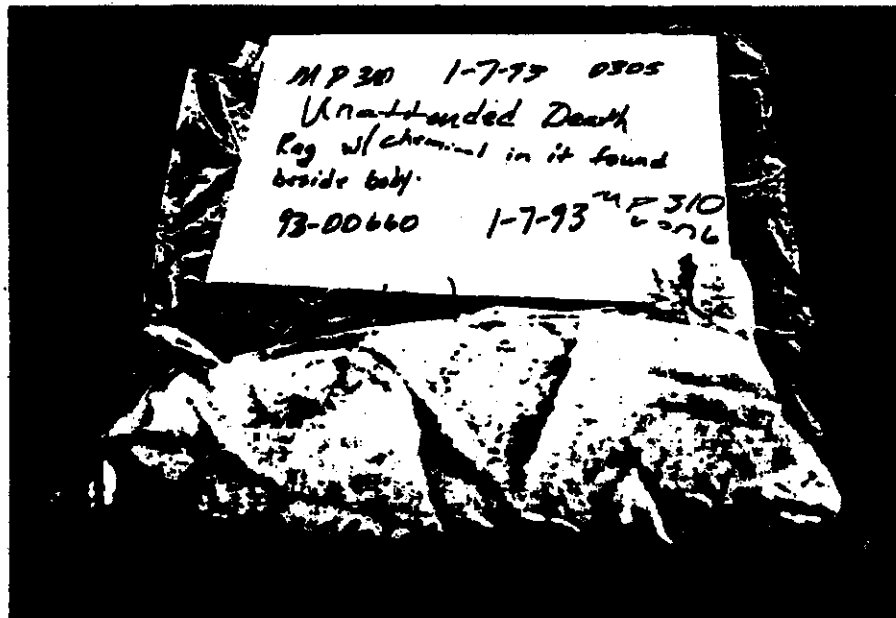 MP 310 1-7-93 0305
Unattended Death
Rag w/chemical in it found
beside body.
93-00660 1-7-93 MP 310